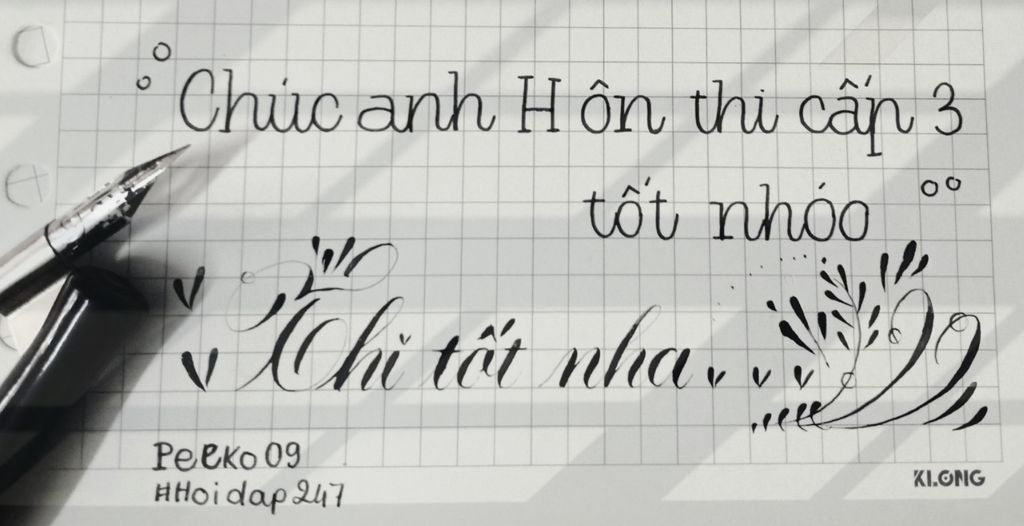 Chúc anh Hôn thi cấp 3
tốt nhóo
Thi tốt nha
Peeko09
#Hoidap247
KLONG